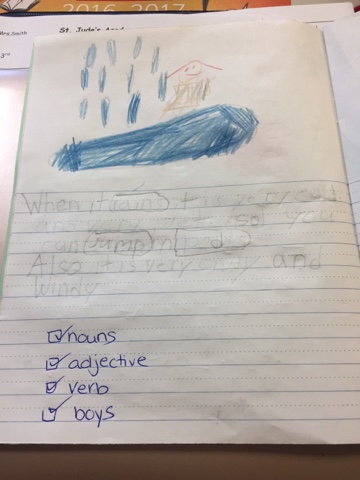 2016-2017
Mrs. Smith
St. Jude's
3rd
When it rains it is very cold
so you
can jump in
Also it is very and
windy
nouns
adjective
verb
boys